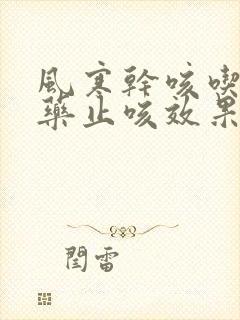 風寒幹咳喫
藥止咳效果
閆雷